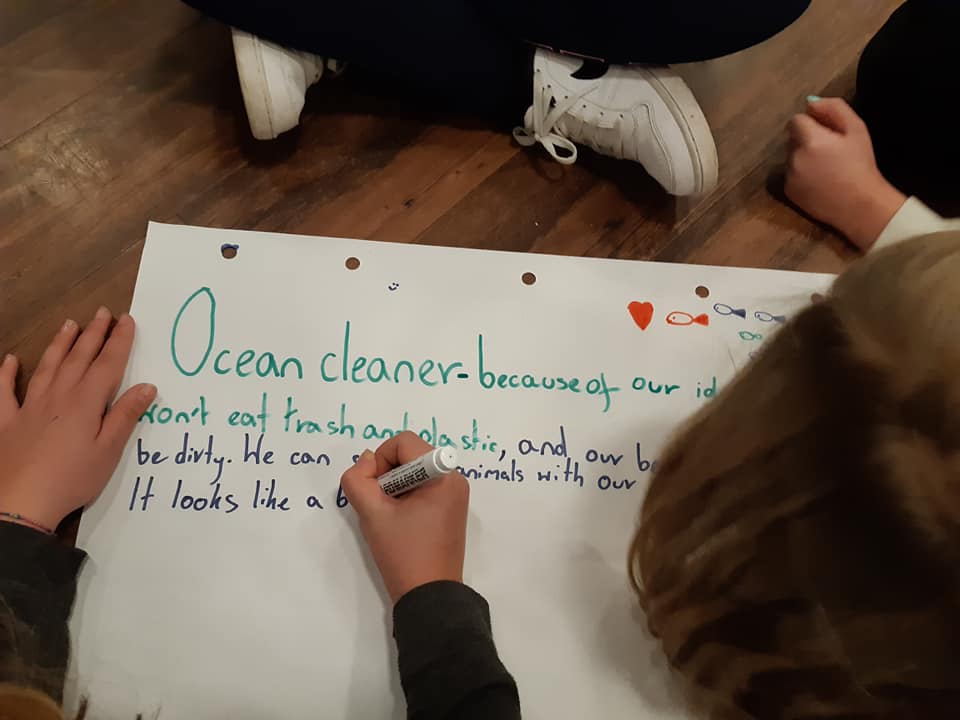 Ocean cleaner - because of our
won't eat trash and plastic, and our
be dirty. We can animals with our
It looks like a